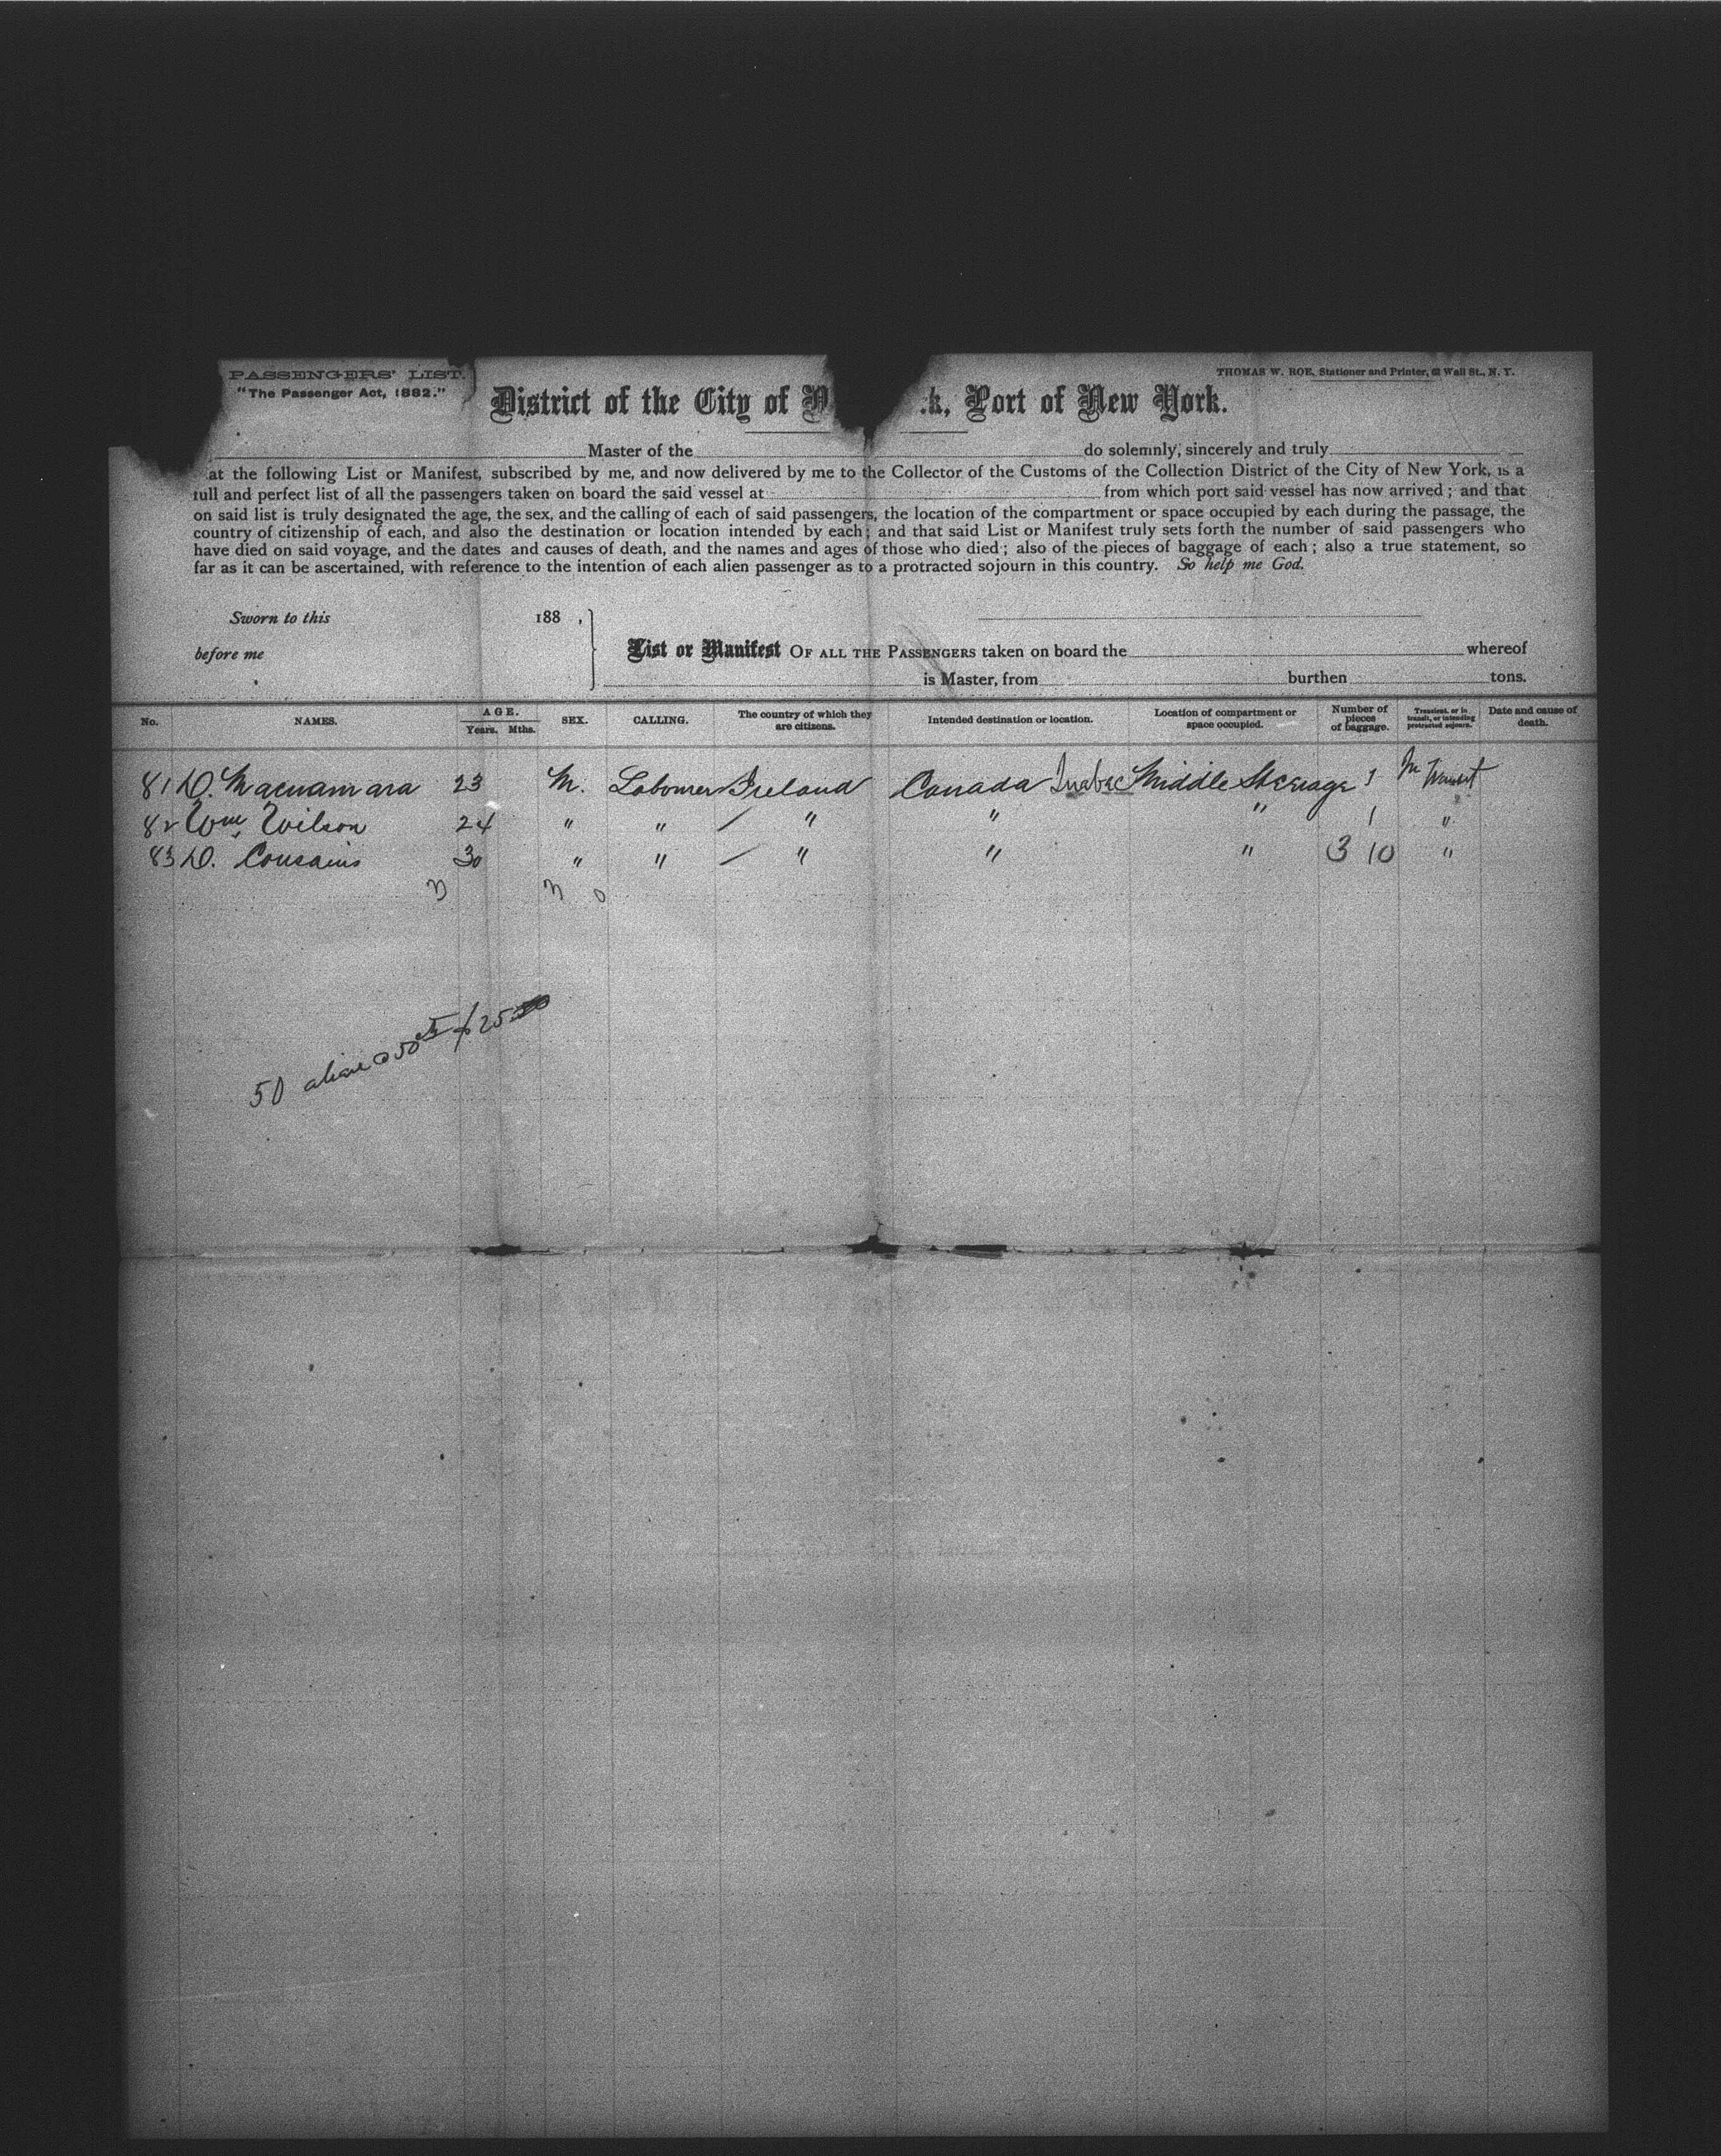 PASSENGERS' LIST.
"The Passenger Act, 1882."
THOMAS W. ROE, Stationer and Printer, 62 Wall St., N. Y.
District of the City of N k, Port of New York.
Master of the do solemnly, sincerely and truly
at the following List or Manifest, subscribed by me, and now delivered by me to the Collector of the Customs of the Collection District of the City of New York, is a
full and perfect list of all the passengers taken on board the said vessel at from which port said vessel has now arrived; and that
on said list is truly designated the age, the sex, and the calling of each of said passengers, the location of the compartment or space occupied by each during the passage, the
country of citizenship of each, and also the destination or location intended by each; and that said List or Manifest truly sets forth the number of said passengers who
have died on said voyage, and the dates and causes of death, and the names and ages of those who died; also of the pieces of baggage of each; also a true statement, so
far as it can be ascertained, with reference to the intention of each alien passenger as to a protracted sojourn in this country. So help me God.
Sworn to this 188 ,
before me
List or Manifest OF ALL THE PASSENGERS taken on board the whereof
is Master, from burthen tons.
No. NAMES. AGE. Years. Mths. SEX. CALLING. The country of which they are citizens. Intended destination or location. Location of compartment or space occupied. Number of pieces of baggage. Transient, or in transit, or intending protracted sojourn. Date and cause of death.
81 D. Macnamara 23 M. Labourer Ireland Canada Middle Steerage 1 In Transit
82 Wm Wilson 24 " " / " " " 1 "
83 D. Cousains 30 " " / " " " 3 10 "
50 @ 50 $25